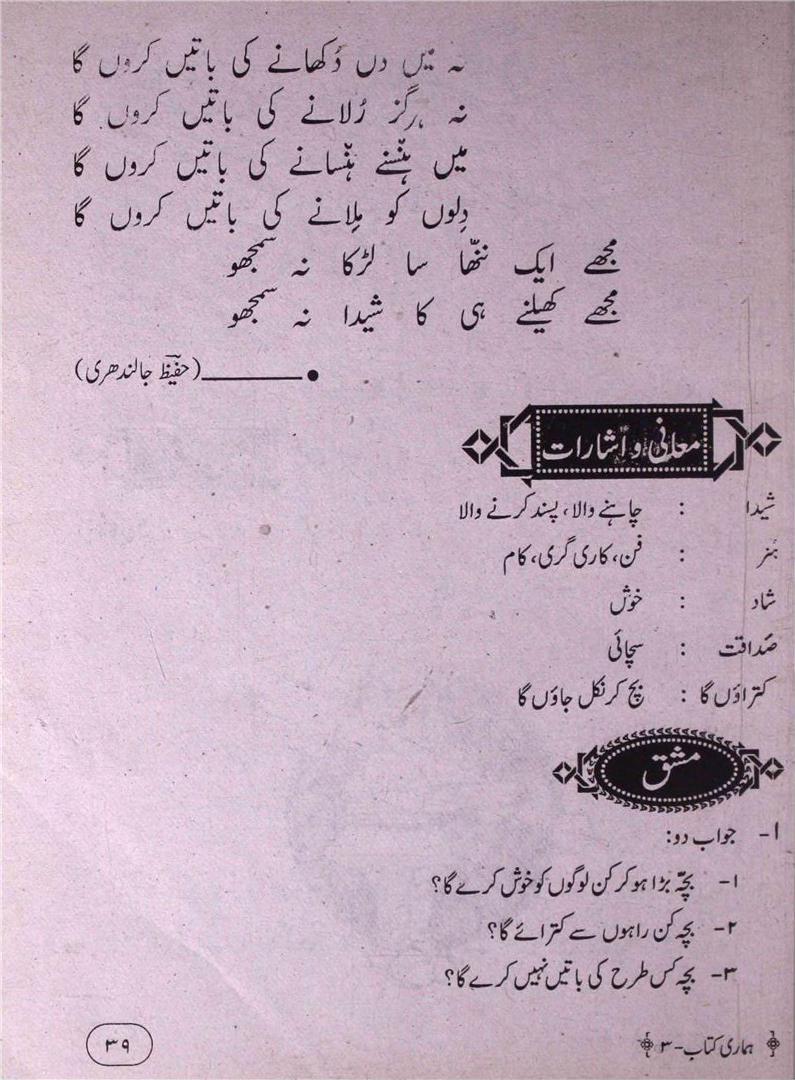 نہ میں دل دُکھانے کی باتیں کروں گا
نہ ہرگز رُلانے کی باتیں کروں گا
میں ہنْسنے ہنْسانے کی باتیں کروں گا
دِلوں کو مِلانے کی باتیں کروں گا
مجھے ایک ننّھا سا لڑکا نہ سمجھو
مجھے کھیلنے ہی کا شیدا نہ سمجھو
●————(حفیظؔ جالندھری)
معانی و اشارات
شیدا : چاہنے والا، پسند کرنے والا
ہُنر : فن، کاری گری، کام
شاد : خوش
صَداقت : سچائی
کتراؤں گا : بچ کر نکل جاؤں گا
مشق
۱- جواب دو:
۱- بچّہ بڑا ہو کر کن لوگوں کو خوش کرے گا؟
۲- بچہ کن راہوں سے کترائے گا؟
۳- بچہ کس طرح کی باتیں نہیں کرے گا؟
ہماری کتاب - ۳
۳۹